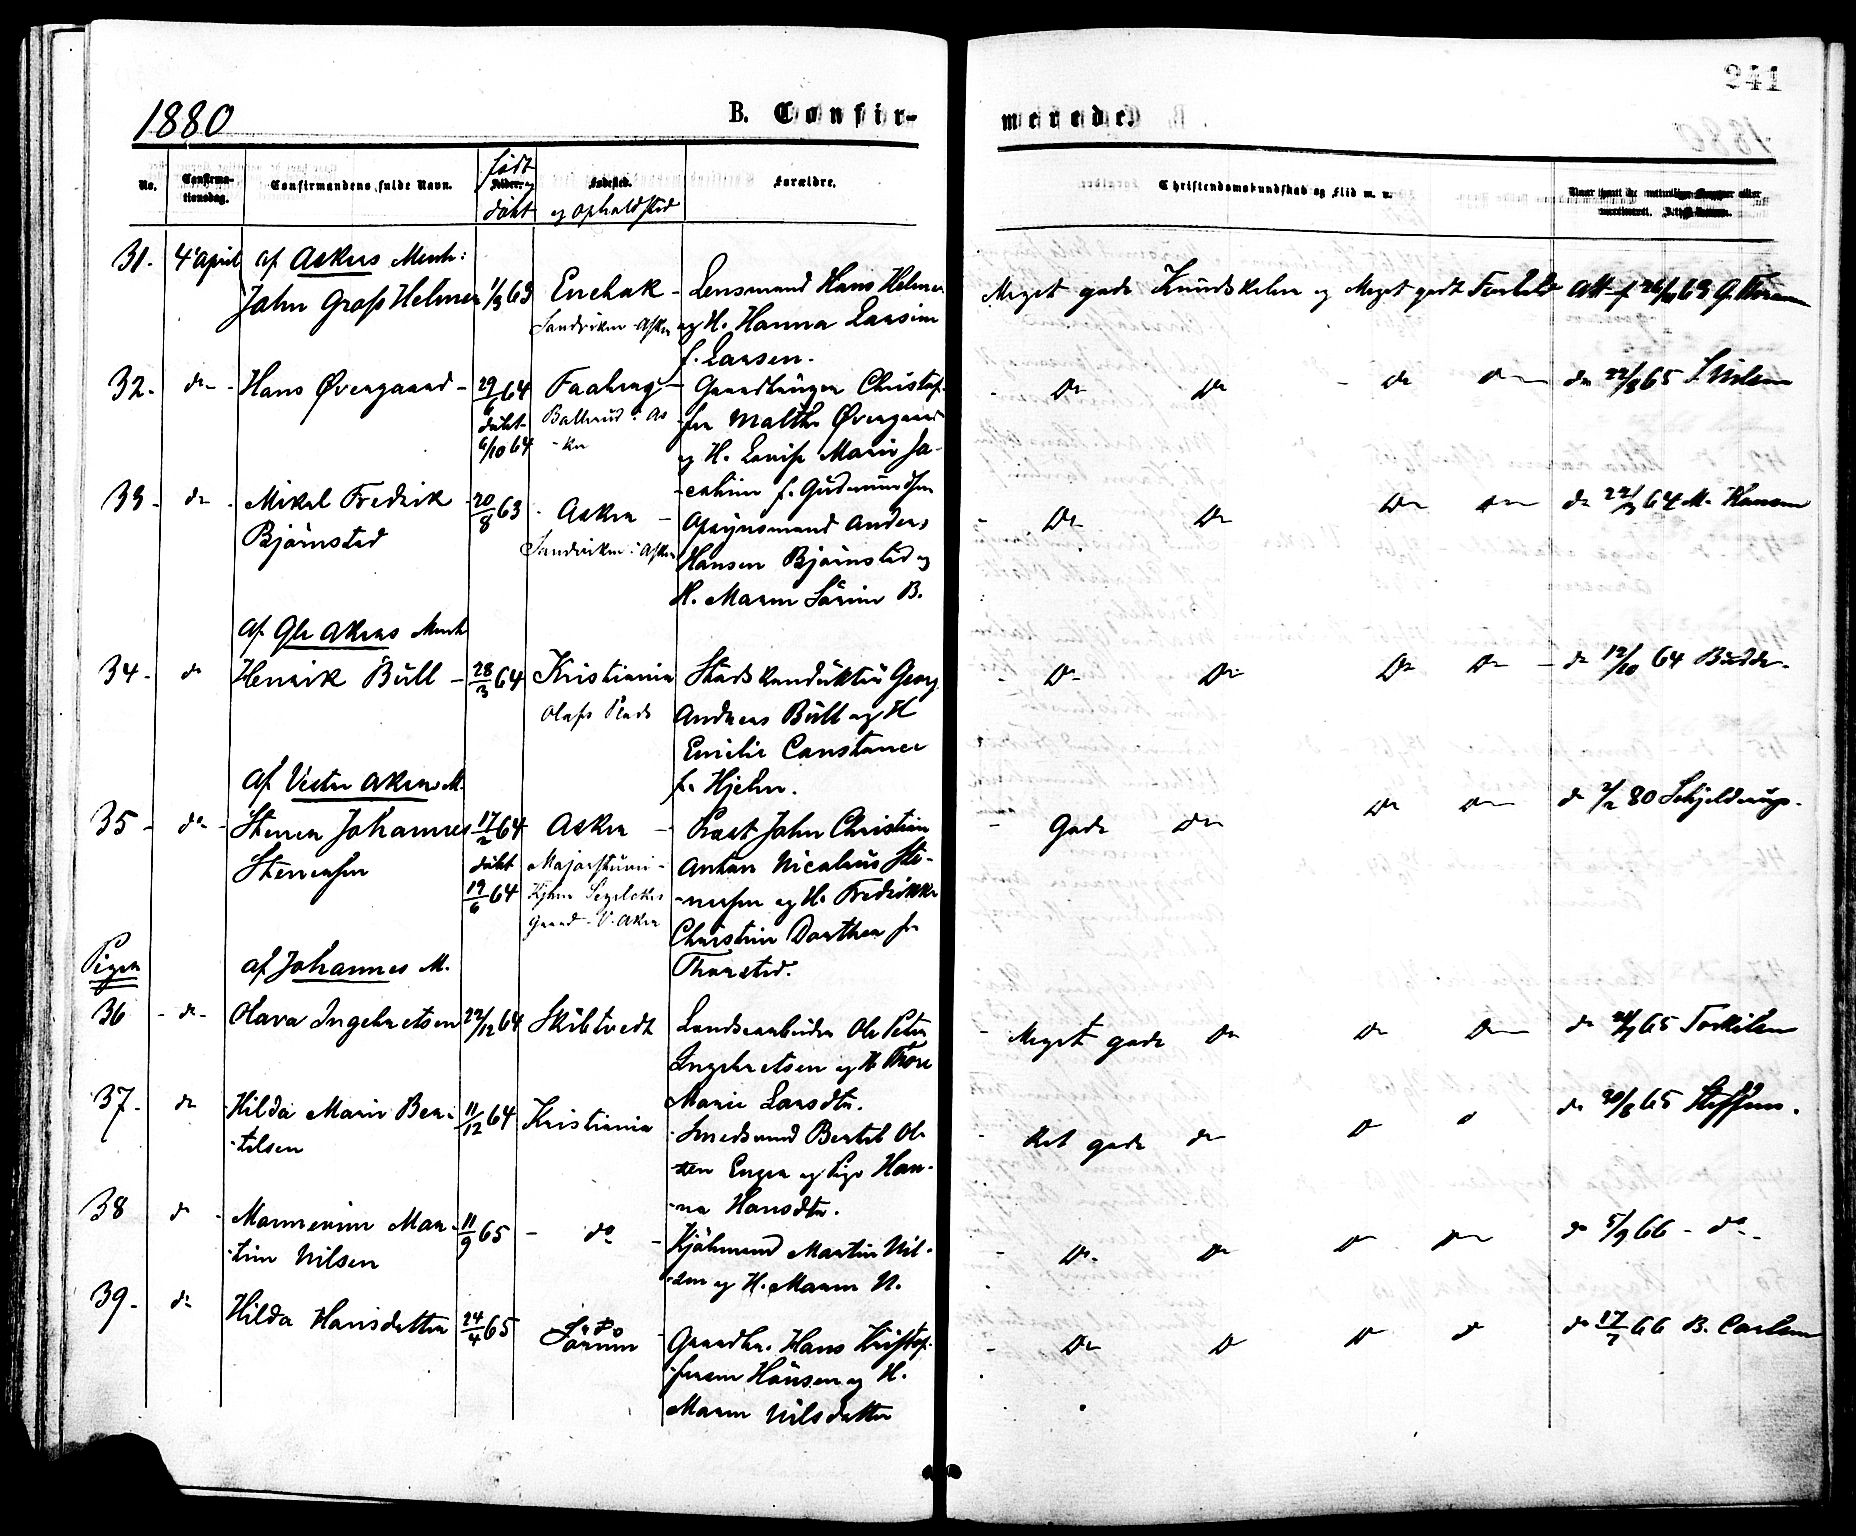 241
1880
B. Confir-
merede.
No.
Confirma-
tionsdag.
Confirmandens fulde Navn.
født
døbt
Fødested.
og opholdsted
Forældre.
Christendomskundskab og Flid m. v.
31. 4 April af Askers Menh:
John Gross Helmer 1/3 63 Enebak - Lensmand Hans Helmer
Sandviken - Asker og H. Hanna Larsine
f. Larsen.
Meget gode Kundskaber og Meget godt Forhold Att f 26/11 63 G. Thoresen
32. do - Hans Øvergaard - 29/6 64 Faaberg - Gaardbruger Christof-
døbt 9/10 64 Ballerud i As-
-ker
-fer Malthe Øvergaard
og H. Lovise Marie Ja-
-cobine f. Gudmundsen
do do - do do do 22/8 65 S. Nilsen
33. do - Mikal Fredrik
Bjørnsted
20/8 63 - Asker -
Sandviken i Asker
Opsynsmand Anders
Hansen Bjørnsted og
H. Maren Sørine B.
do do do do do 64 M. Hansen
af Gle Akers Menh
34. do Henrik Bull - 28/3 64 Kristiania
Olafs Plads
Stadskonduktør Georg
Andreas Bull og H
Emilie Constance
f. Hjelm.
do do do do - do 12/10 64 Budde.
af Vestre Akers M.
35 - do - Stener Johannes
Stenersen
17/2 64
døbt
19/6 64
Asker -
Majorstuen -
Gaard - V. Aker
Præst John Christian
Anton Nicolaus Ste-
-nersen og H. Fredrikke
Christine Dorthea f.
Thorsted.
Gode do do do do 2/2 80 Schjelderup.
Piger
af Johannes M.
36 - do - Olava Ingebretsen 22/12 64 Skibtvedt
Landsarbeider Ole Peter
Ingebretsen og H Thore
Marie Larsdtr.
Meget gode do do do do 65 Torkilsen
37. do Hilda Marie Ber-
-tilsen
11/12 64 Kristiania
Smedsvend Bertel Ol-
-sen Enger og Pige Han-
-na Hansdtr.
Ret gode do do do do 20/8 65 Steffens.
38 do - Marmenine Mar-
-tine Nilsen
11/9 65 - do -
Kjøbmand Martin Nil-
-sen og H. Maren N.
do do do do do 5/9 66 - do -
39. do Hilda Hansdatter 24/4 65
Sørum
Gaardbr. Hans Kristof-
-fersen Hansen og H.
Maren Nilsdatter
do do do do do 17/7 66 B. Carlsen